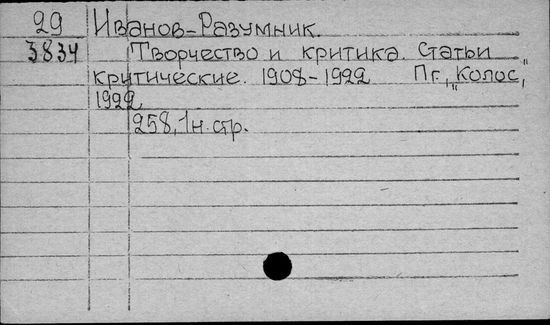 29 Иванов-Разумник.
3834 Творчество и критика. Статьи
критические. 1908-1922 Пг., "Колос",
1922
258, 1 н. стр.